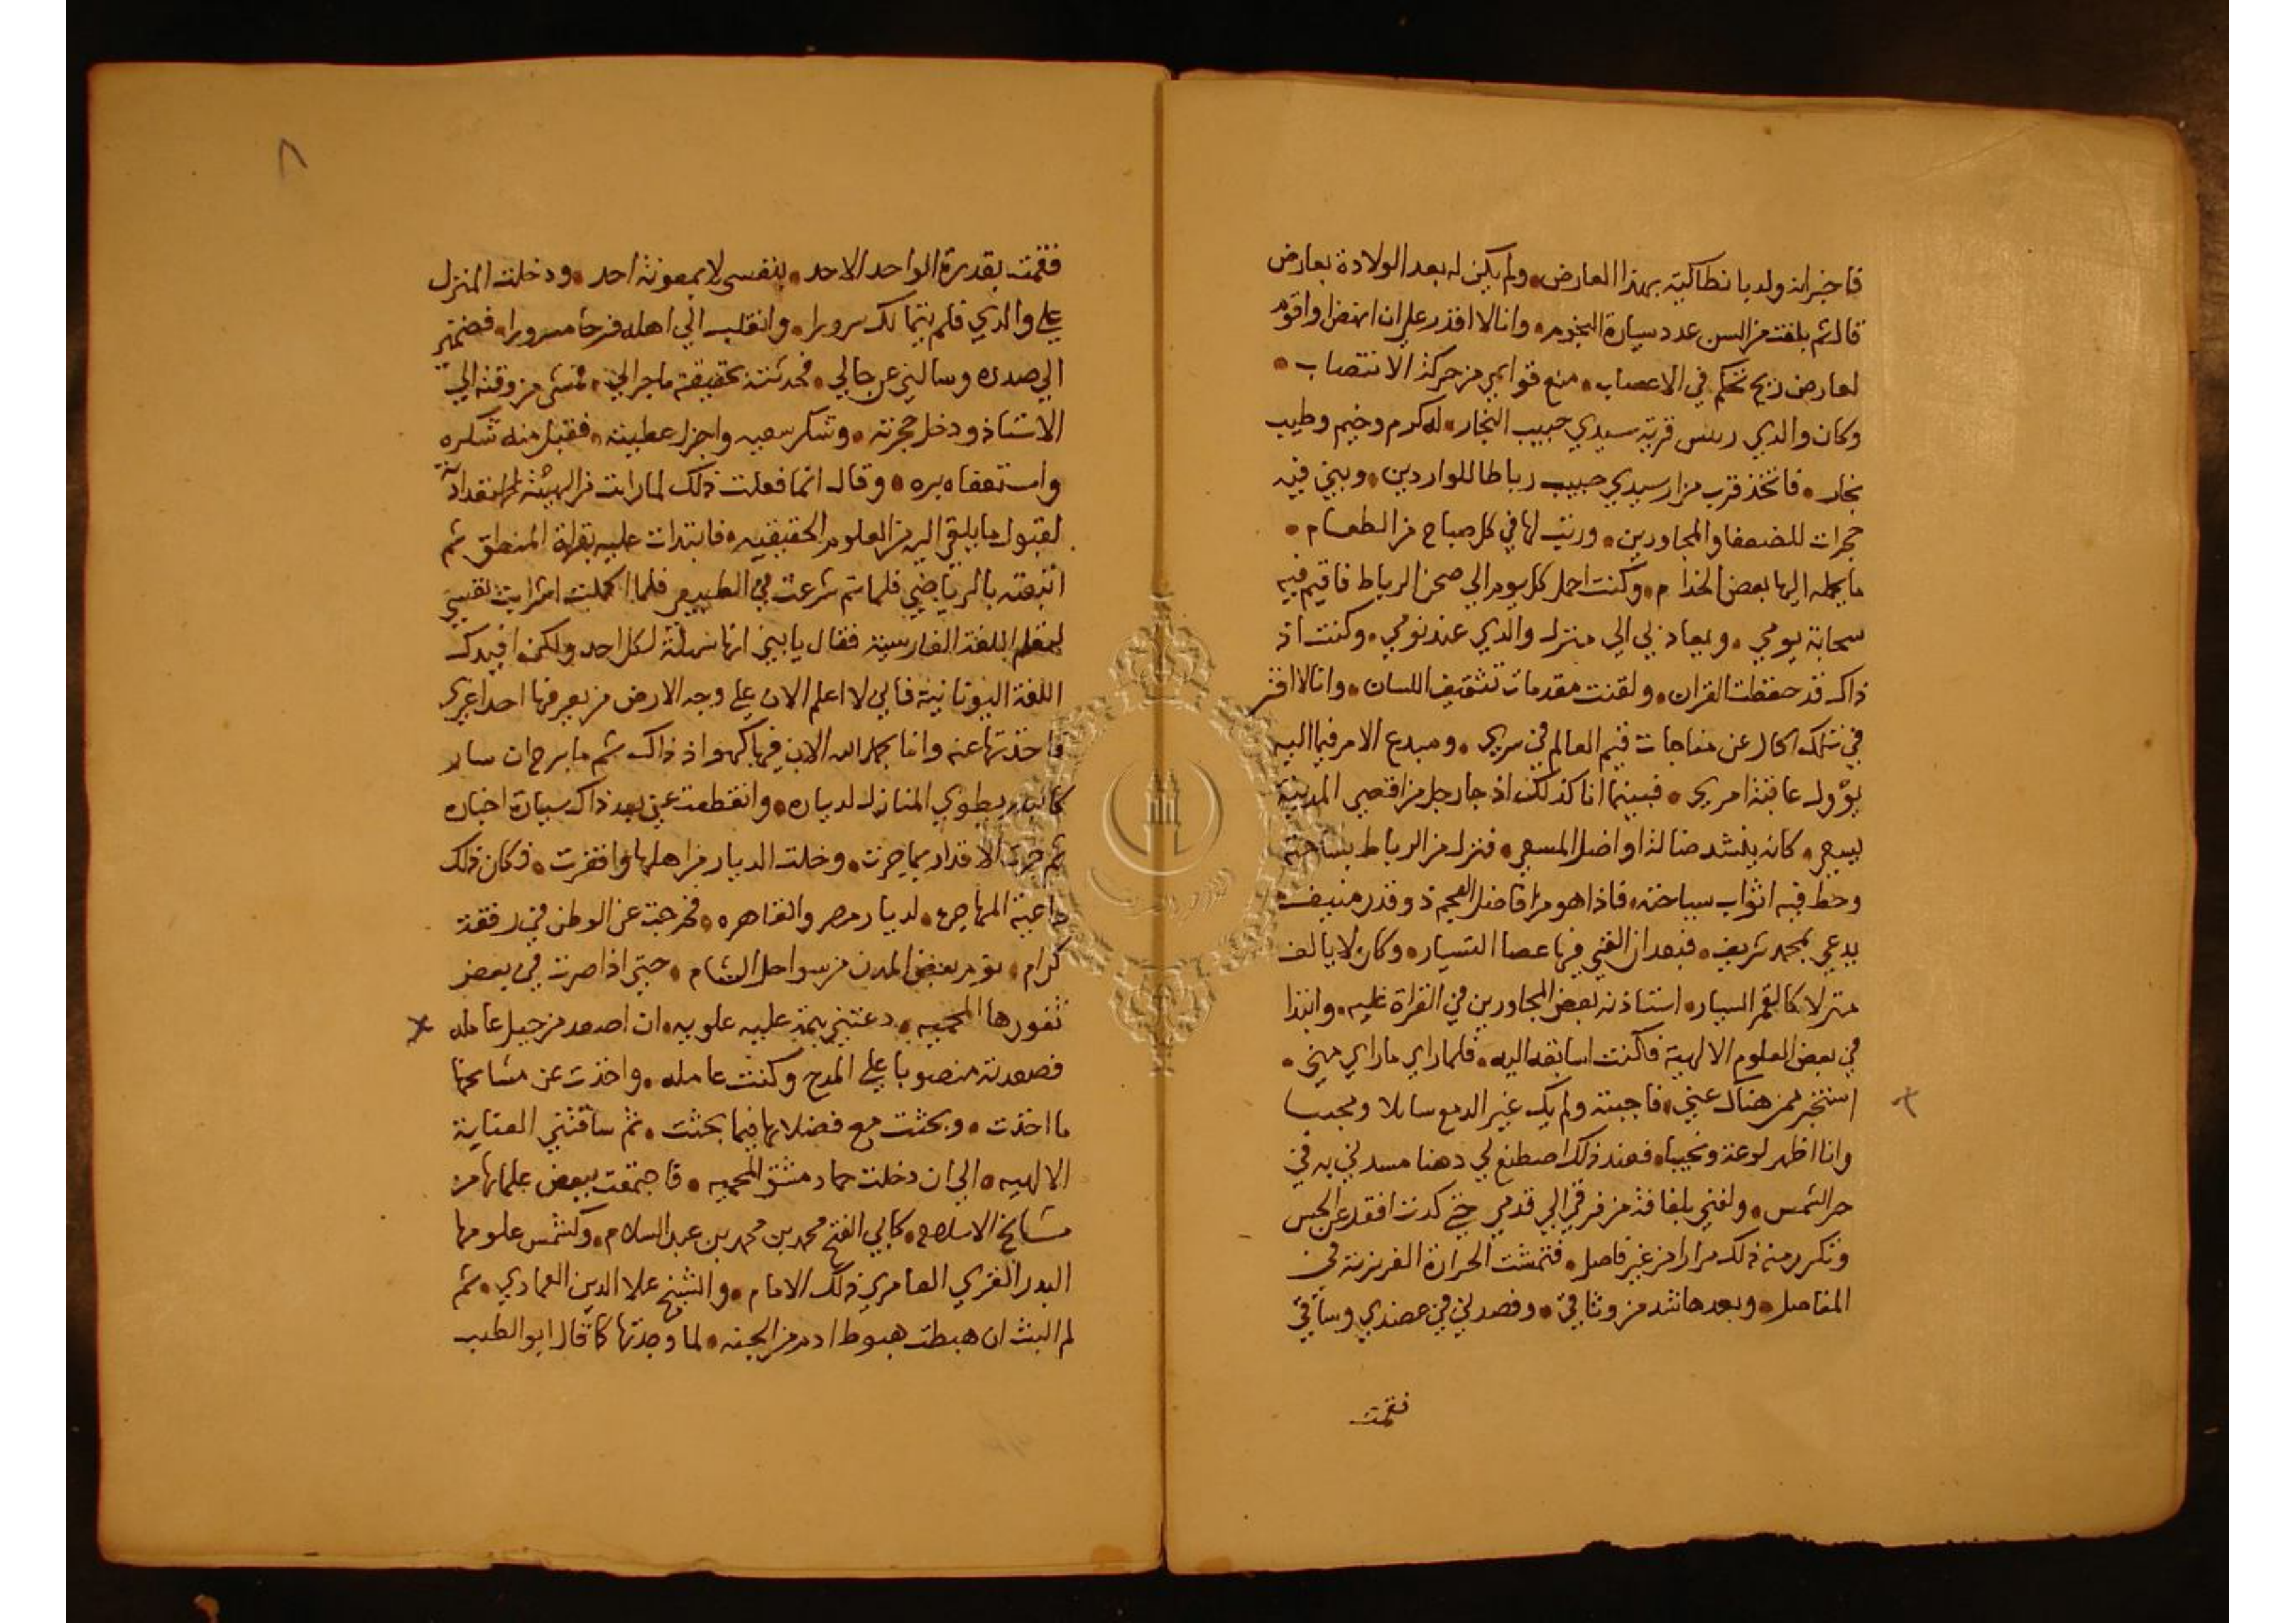 فاخبر انه ولد بانطاكية بهذا العارض ولم يكن له بعد الولادة بعارض
قال ثم بلغت من السن عدد سيارة النجوم وانا لا اقدر علي ان انهض او اقوم
لعارض ريح تحكم في الاعصاب منع قوايمي من حركة الانتصاب
وكان والدي رييس قرية سيدي حبيب النجار له كرم وخيم وطيب
نجار فاتخذ قرب مزار سيدي حبيب رباطا للواردين وبني فيه
حجرات للضعفا والمجاورين ورتب لها في كل صباح من الطعام
ما يحمله اليها بعض الخدام وكنت احمل كل يوم الي صحن الرباط فاقيم فيه
سحابة يومي ويعاد بي الي منزل والدي عند نومي وكنت اذ
ذاك قد حفظت القران ولقنت مقدمات تثقيف اللسان وانا لا افتر
في تلك الحال عن مناجات قيم العالم في سري ومبدع الامر فيما اليه
يؤول عاقبة امري فبينما انا كذلك اذ جا رجل من اقصي المدينة
يسعي كانه ينشد ضالة او اضل المسعي فنزل من الرباط بساحته
وحط فيه اثواب سياحته فاذا هو من افاضل العجم ذو قدر منيف
يدعي بمحمد شريف فبعد ان القي فيها عصا التسيار وكان لا يالف
منزلا كالقمر السيار استاذنه بعض المجاورين في القراة عليه وابتدا
في بعض العلوم الالهية فكنت اسابقه اليه فلما راي ما راي مني
استخبر ممن هناك عني فاجبته ولم يك غير الدمع سايلا ومجيبا
وانا اظهر لوعة ونحيبا فعند ذلك اصطنع لي دهنا مسدني به في
حر الشمس ولفني بلفافة من فرقي الي قدمي حتي كدت افقد عن الحس
وتكرر منه ذلك مرارا من غير فاصل فتمشت الحرارة الغريزية في
المفاصل وبعدها شد من وثاقي وفصدني في عضدي وساقي
فقمت
٨
فقمت بقدرة الواحد الاحد بنفسي لا بمعونة احد ودخلت المنزل
علي والدي فلم يتمالك سرورا وانقلب الي اهله فرحا مسرورا فضمني
الي صدره وسالني عن حالي فحدثته بحقيقة ما جرالي فمشي من وقته الي
الاستاذ ودخل حجرته وشكر سعيه واجزل عطيته فقبل منه شكره
واستعفاه بره وقال انما فعلت ذلك لما رايت من الهيئة الاستعدادية
لقبول ما يلقي اليه من العلوم الحقيقيه فابتدات عليه بقراة المنطق ثم
اتبعته بالرياضي فلما تم شرعت في الطبيعي فلما اكملت اشرابت نفسي
لتعلم اللغة الفارسية فقال يا بني انها سهلة لكل احد ولكني افيدك
اللغة اليونانية فاني لا اعلم الان علي وجه الارض من يعرفها احدا غيري
فاخذتها عنه وانا بحمد الله الان فيها كهو اذ ذاك ثم ما برح ان سار
كالبدر يطوي المنازل لدياره وانقطعت عني بعد ذاك سيارة اخباره
ثم جرت الاقدار بما جرت وخلت الديار من اهلها واقفرت فكان ذلك
داعية المهاجره لديار مصر والقاهره فخرجت عن الوطن في رفقة
كرام نؤم بعض المدن من سواحل الشام حتي اذا صرت في بعض
ثغورها المحميه دعتني همة علية علويه ان اصعد من جبل عامله
فصعدته منصوبا علي المدح وكنت عامله واخذت عن مشايخها
ما اخذت وبحثت مع فضلايها فيما بحثت ثم ساقتني العناية
الالهيه الي ان دخلت حما دمشق المحميه فاجتمعت ببعض علمايها من
مشايخ الاسلام كابي الفتح محمد بن محمد بن عبد السلام وكشمس علومها
البدر الغزي العامري ذلك الامام والشيخ علا الدين العمادي ثم
لم البث ان هبطت هبوط ادم من الجنه لما وجدتها كما قال ابو الطيب